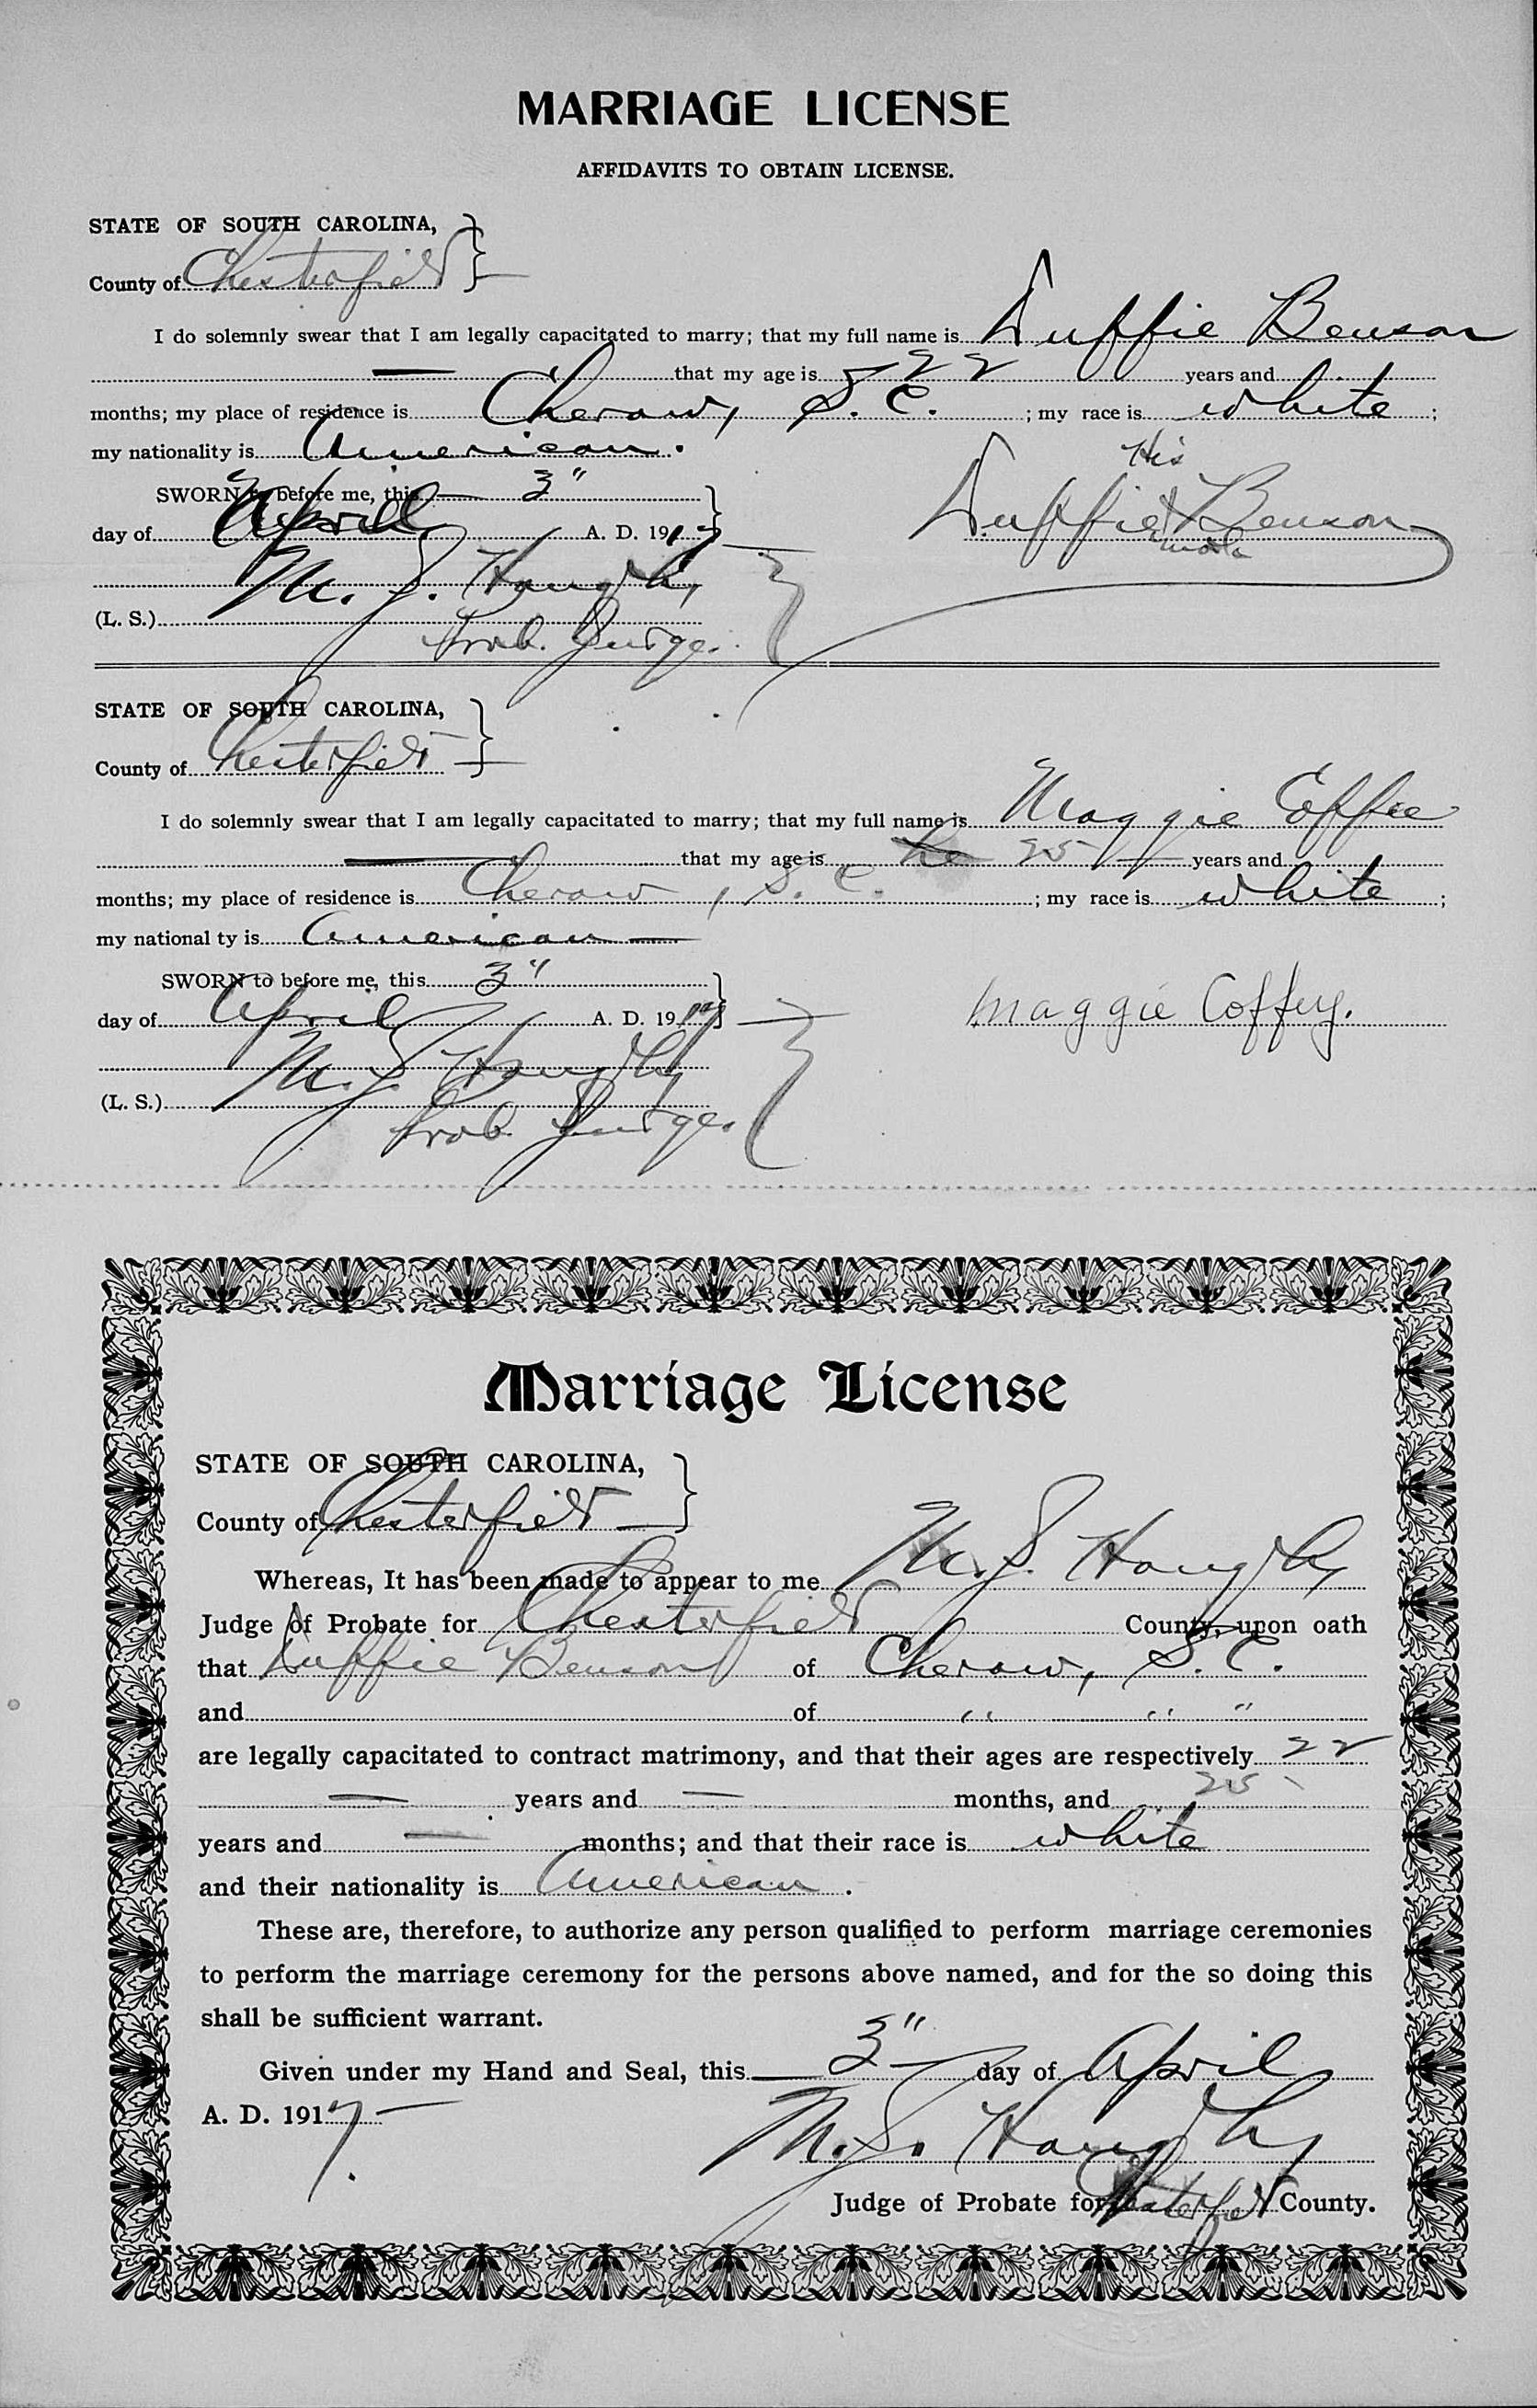 MARRIAGE LICENSE
AFFIDAVITS TO OBTAIN LICENSE.
STATE OF SOUTH CAROLINA,
County of Chesterfield
I do solemnly swear that I am legally capacitated to marry; that my full name is Duffie Benson
that my age is 22 years and
months; my place of residence is Cheraw, S. C. ; my race is white ;
my nationality is American.
His
SWORN to before me, this 3"
Duffie X Benson
mark
day of April A. D. 1917
M. J. Hough,
(L. S.)
Prob. Judge.
STATE OF SOUTH CAROLINA,
County of Chesterfield
I do solemnly swear that I am legally capacitated to marry; that my full name is Maggie Coffee
that my age is 25 years and
months; my place of residence is Cheraw, S. C. ; my race is white ;
my national ty is American
SWORN to before me, this 3"
day of April A. D. 1917
Maggie Coffey.
M. J. Hough
(L. S.)
Prob. Judge.
Marriage License
STATE OF SOUTH CAROLINA,
County of Chesterfield
Whereas, It has been made to appear to me M. J. Hough,
Judge of Probate for Chesterfield County, upon oath
that Duffie Benson of Cheraw, S. C.
and of " " "
are legally capacitated to contract matrimony, and that their ages are respectively 22
years and months, and 25
years and months; and that their race is white
and their nationality is American.
These are, therefore, to authorize any person qualified to perform marriage ceremonies
to perform the marriage ceremony for the persons above named, and for the so doing this
shall be sufficient warrant.
Given under my Hand and Seal, this 3" day of April
A. D. 1917
M. J. Hough
Judge of Probate for Chesterfield County.